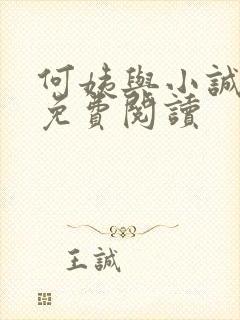 何姨與小誠
免費閱讀
王誠